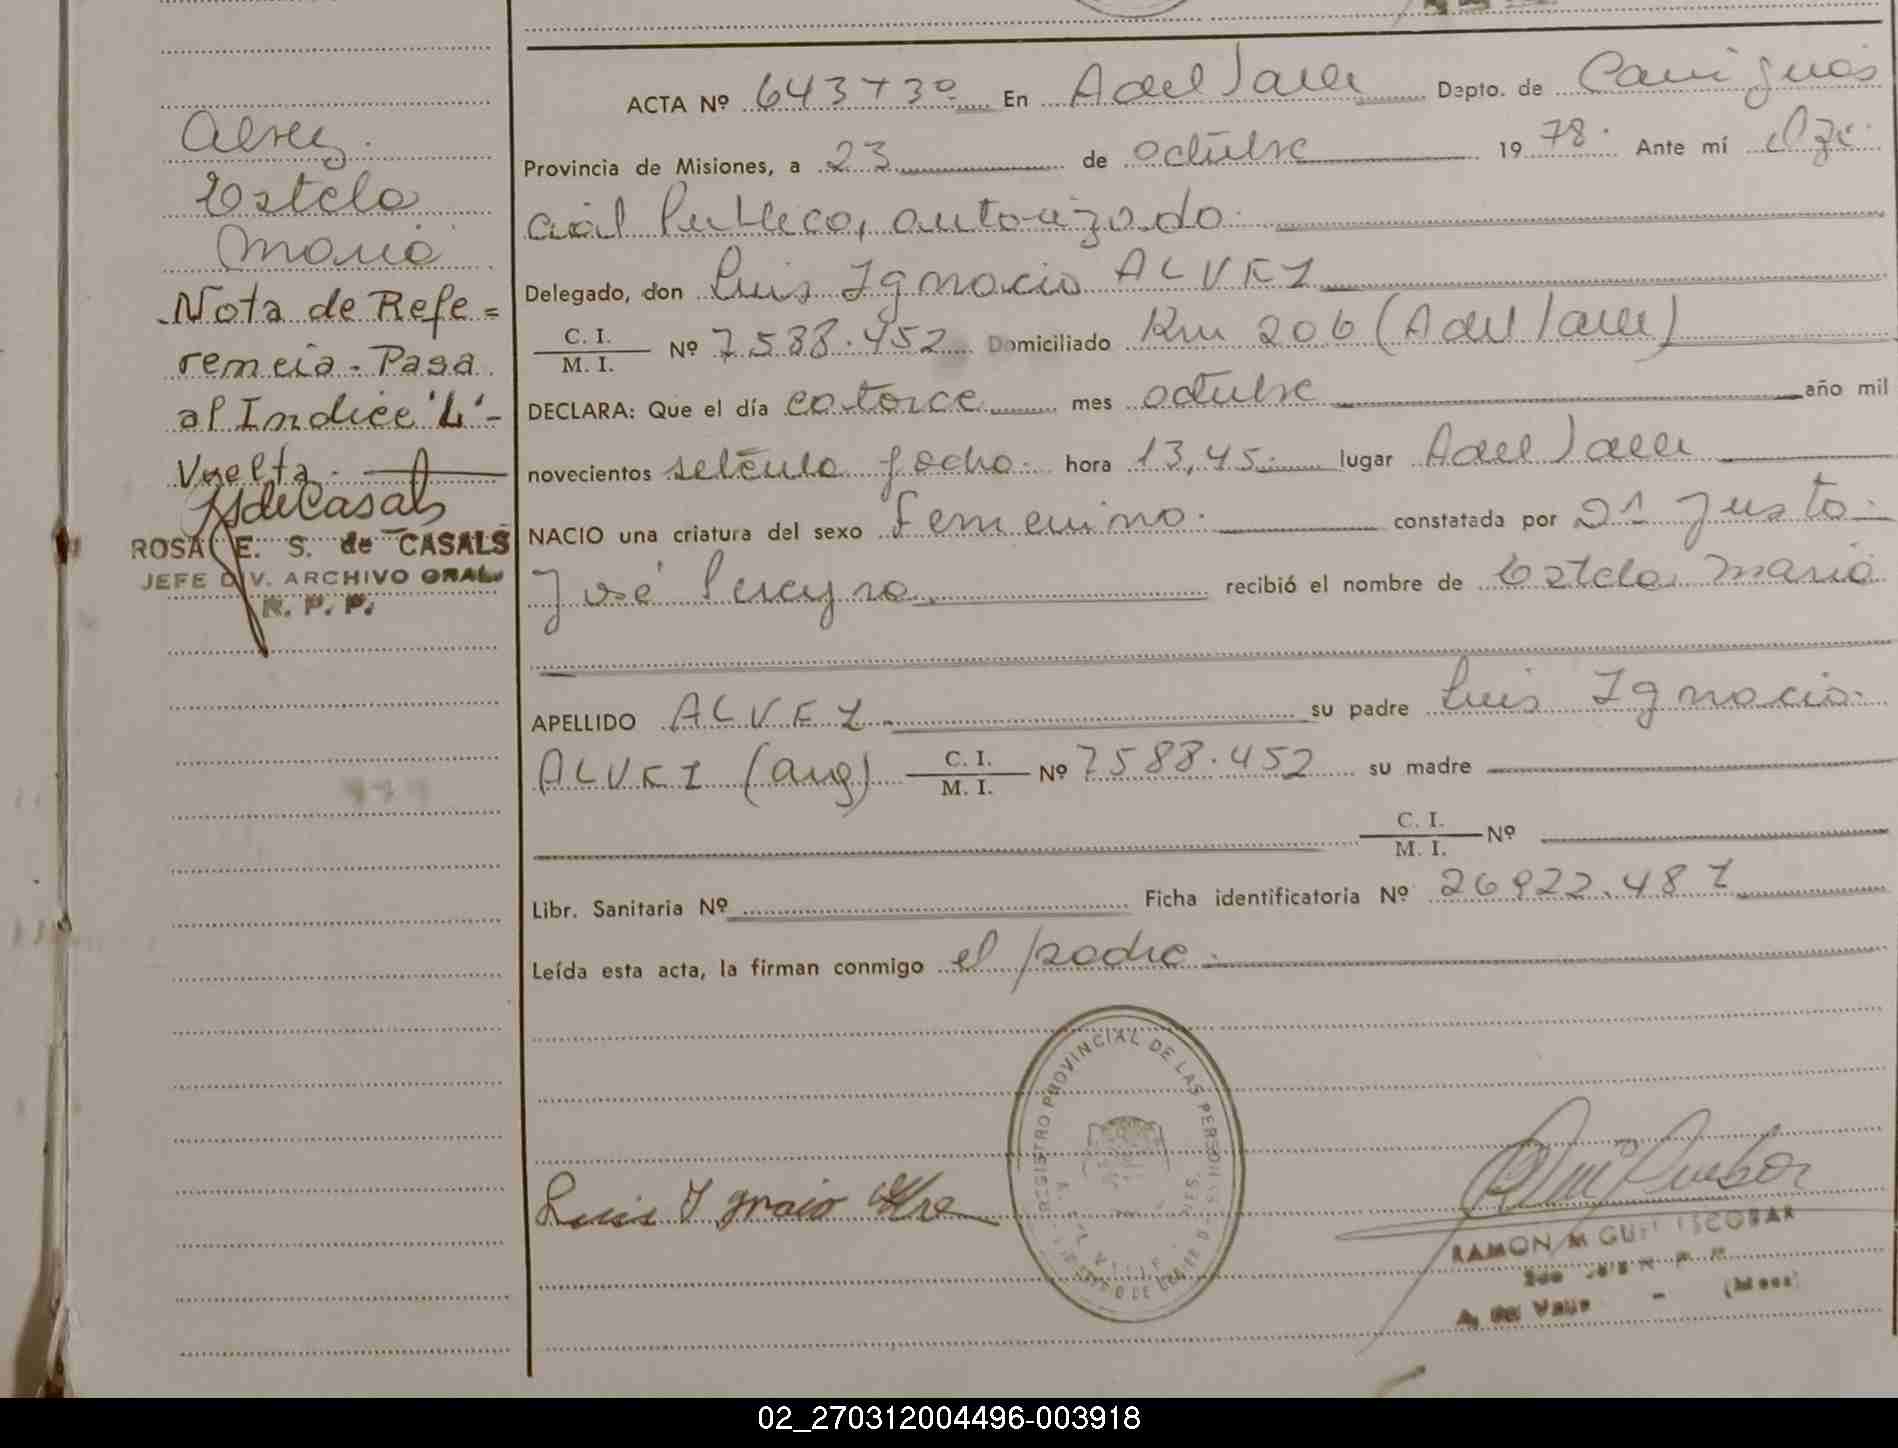 ACTA Nº 643 T 3º En A del Valle Depto. de Cainguás
Provincia de Misiones, a 23 de octubre 19 78. Ante mí Ofi-
cial Publico, autorizado.
Delegado, don Luis Ignacio ALVEZ
C. I.
M. I.
Nº 7.588.452 Domiciliado Km 206 (A del Valle)
DECLARA: Que el día catorce mes octubre año mil
novecientos setenta y ocho. hora 13,45 lugar A del Valle
NACIO una criatura del sexo Femenino. constatada por Dr Justo
José Pereyra. recibió el nombre de Estela Maria
APELLIDO ALVEZ su padre Luis Ignacio
ALVEZ (arg) C. I. M. I. Nº 7588.452 su madre
C. I.
M. I.
Nº
Libr. Sanitaria Nº Ficha identificatoria Nº 26922.487
Leída esta acta, la firman conmigo el padre.
Luis Ignacio
REGISTRO PROVINCIAL DE LAS PERSONAS
RAMON MIGUEL ESCOBAR
A. del Valle - (Mnes)
Alvez.
Estela
Maria
Nota de Refe=
rencia - Pasa
al Indice "L" -
Vuelta.
RSdeCasals
ROSA E. S. de CASALS
JEFE DIV. ARCHIVO GRAL.
R. P. P.
02_270312004496-003918